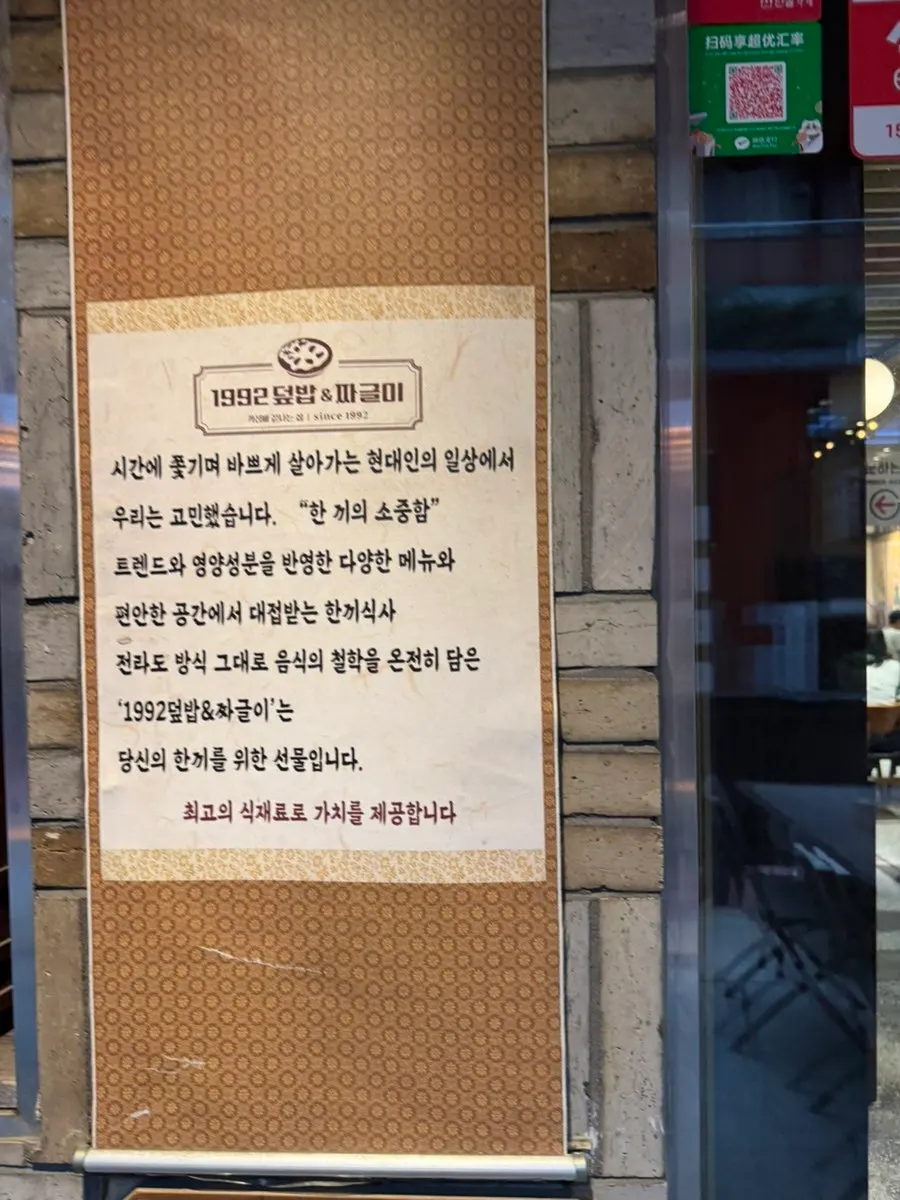 1992 덮밥 & 짜글이
since 1992
시간에 쫓기며 바쁘게 살아가는 현대인의 일상에서
우리는 고민했습니다. “한 끼의 소중함”
트렌드와 영양성분을 반영한 다양한 메뉴와
편안한 공간에서 대접받는 한끼식사
전라도 방식 그대로 음식의 철학을 온전히 담은
‘1992덮밥&짜글이’는
당신의 한끼를 위한 선물입니다.
최고의 식재료로 가치를 제공합니다
扫码享超优汇率
15